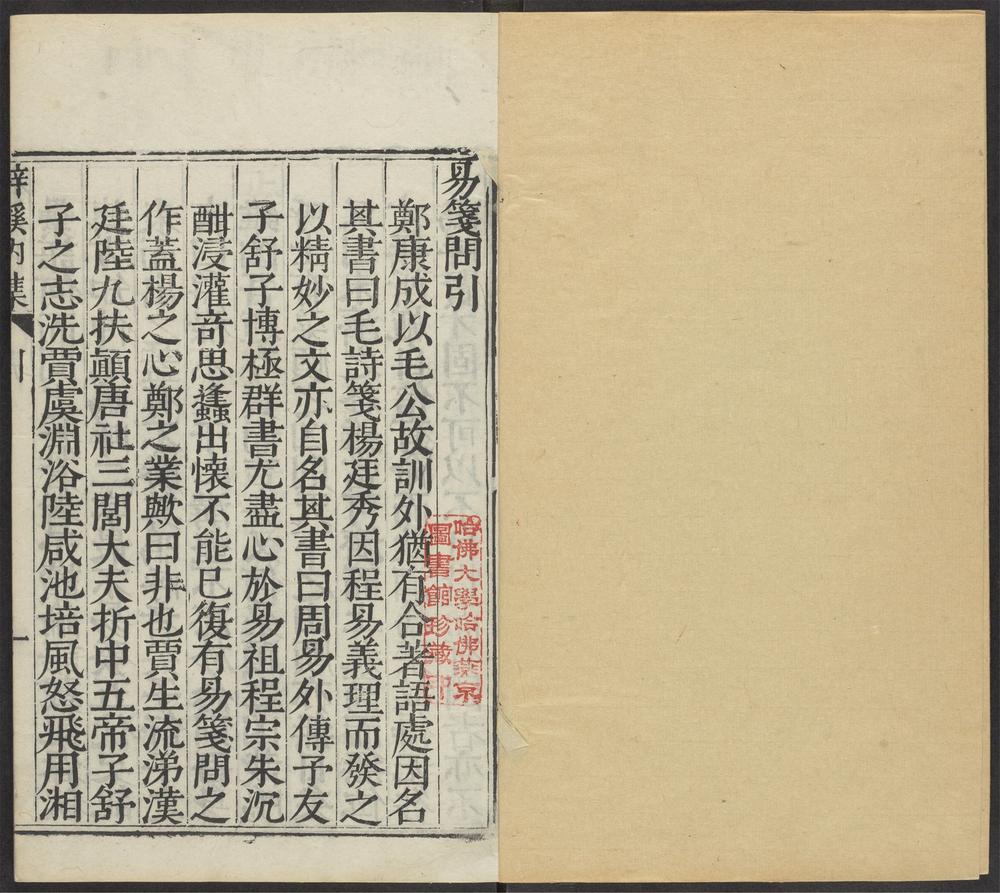 易箋問引
鄭康成以毛公故訓外猶有合著語處因名
其書曰毛詩箋楊廷秀因程易義理而發之
以精妙之文亦自名其書曰周易外傳予友
子舒子博極群書尤盡心於易祖程宗朱沉
酣浸灌奇思蠭出懷不能已復有易箋問之
作蓋楊之心鄭之業歟曰非也賈生流涕漢
廷陸九扶顛唐社三閭大夫折中五帝子舒
子之志洗賈虞淵浴陸咸池培風怒飛用湘
梓溪內集
引
一
哈佛大學哈佛燕京
圖書館珍藏印